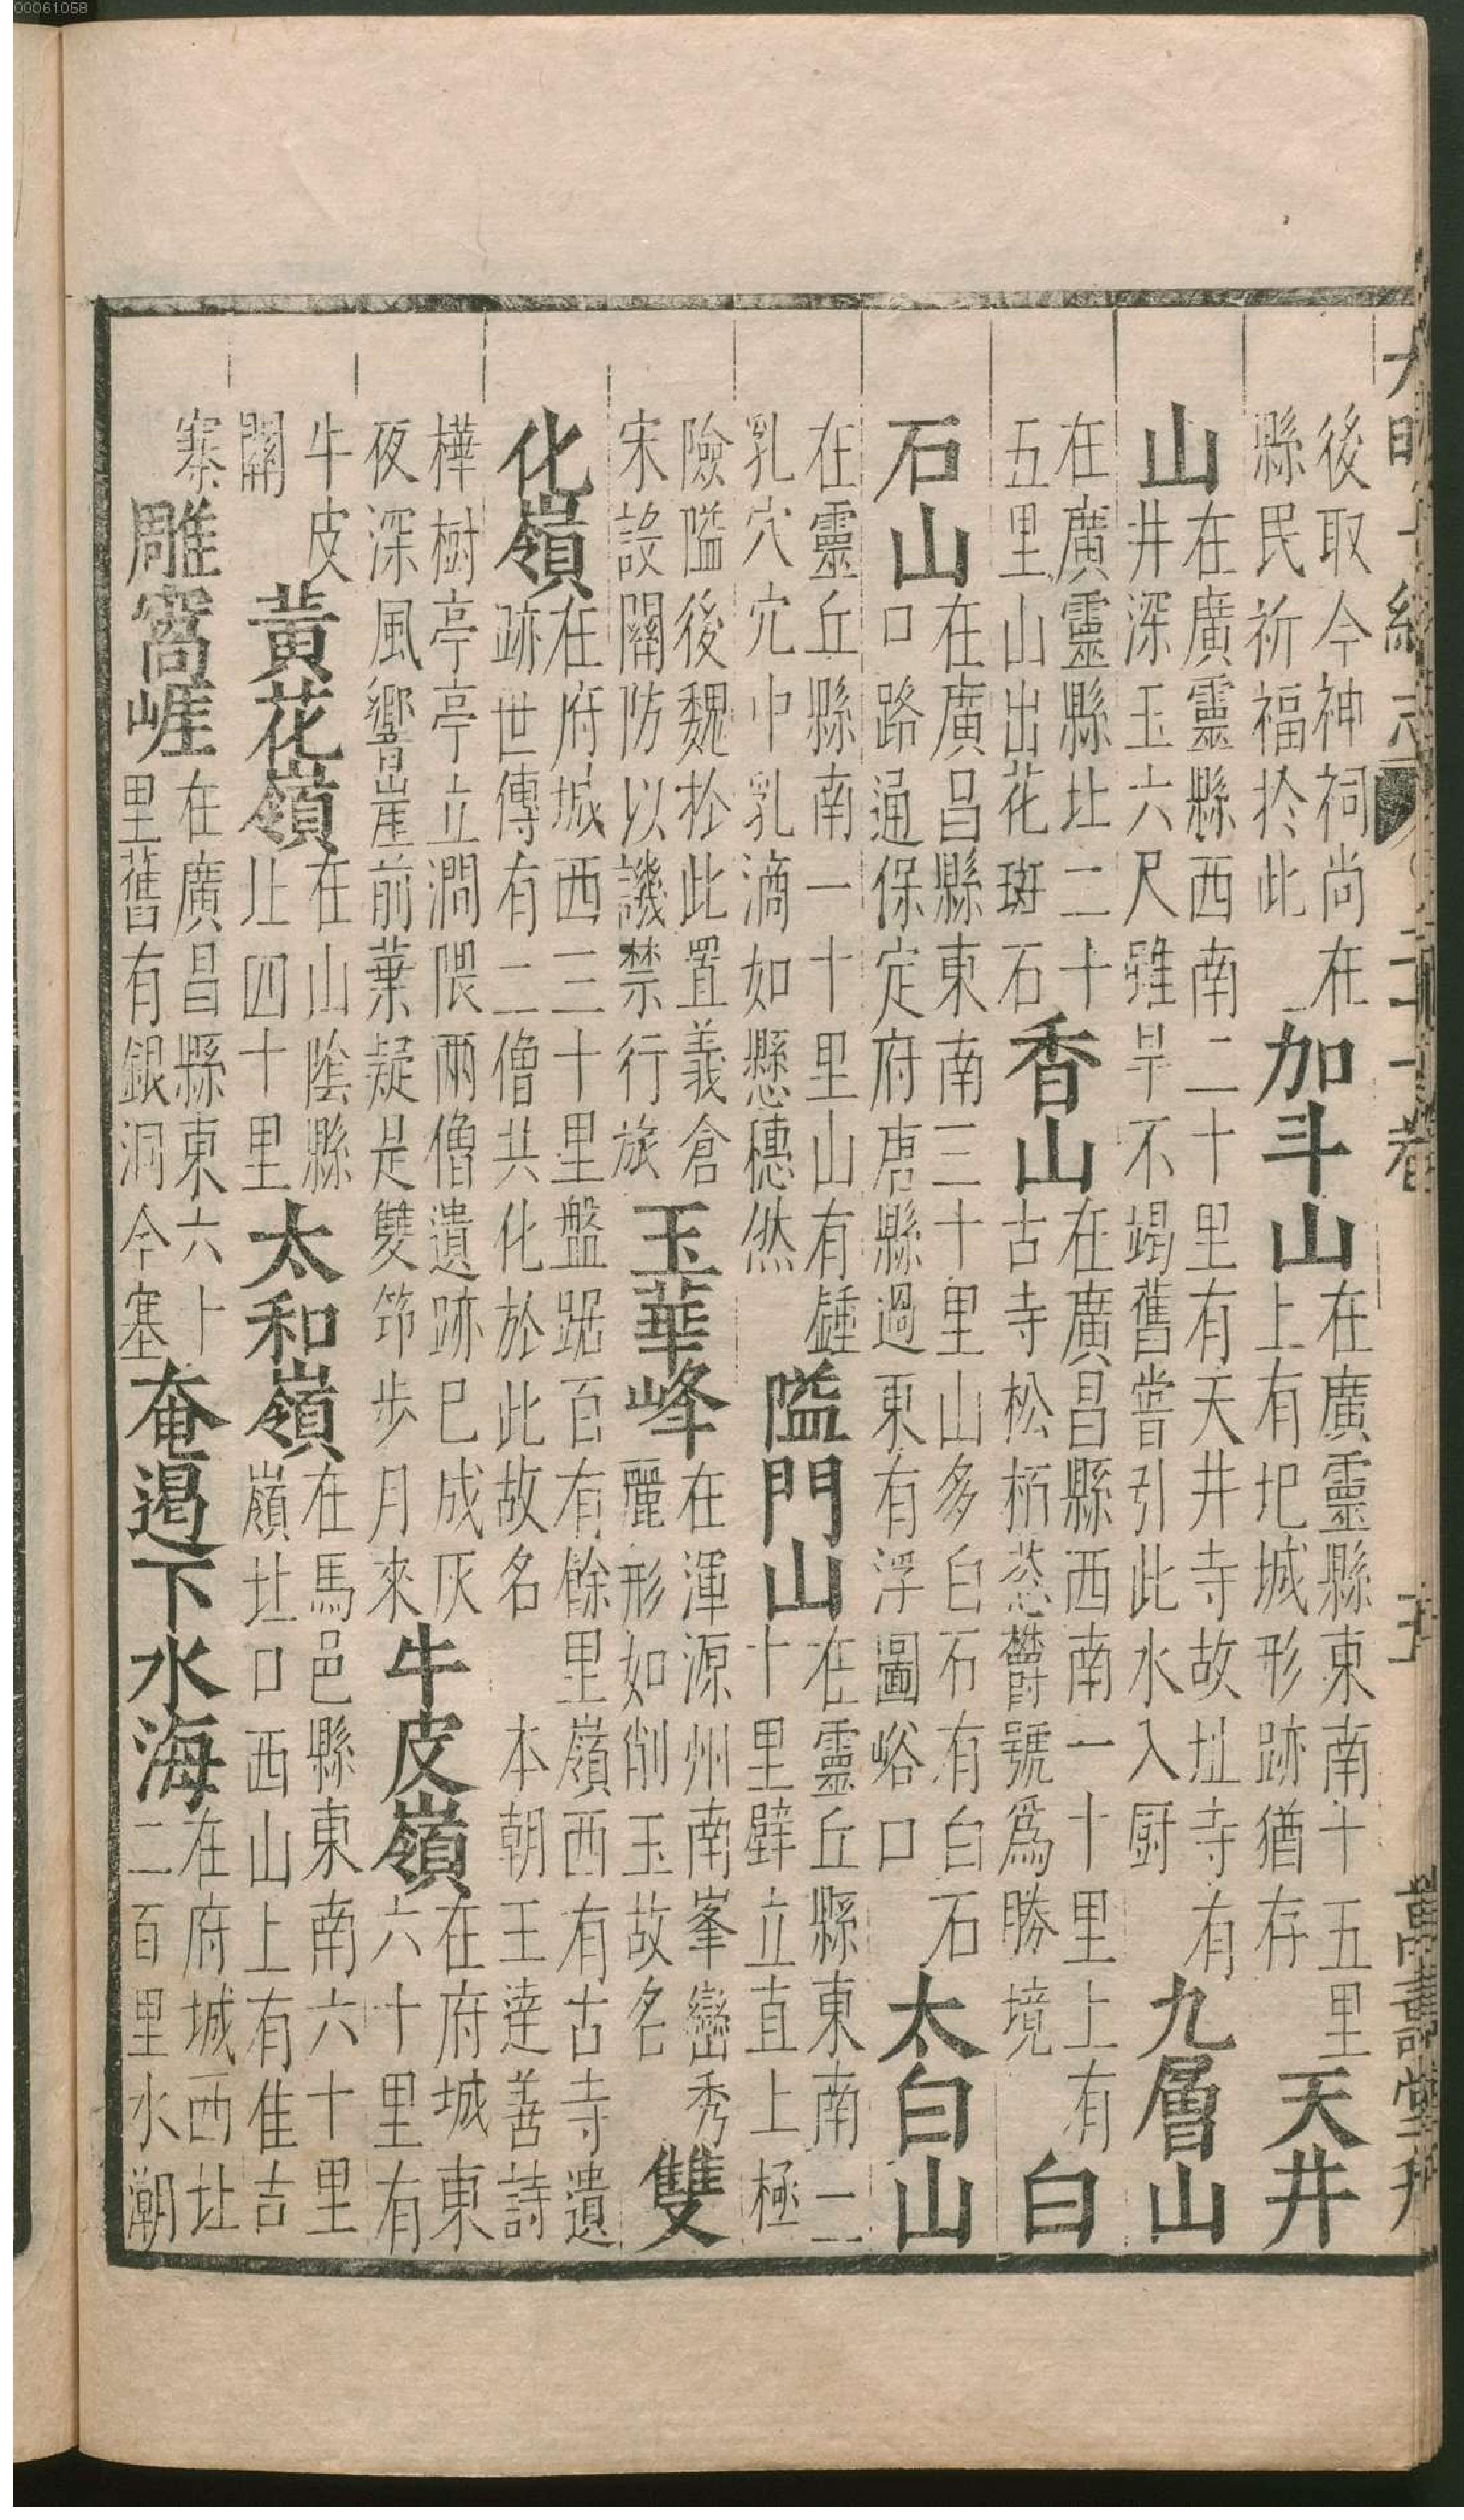 後取今神祠尚在縣民祈福於此加斗山在廣靈縣東南十五里上有圯城形跡猶存天井
山在廣靈縣西南二十里有天井寺故址寺有井深玉六尺雖旱不竭舊嘗引此水入厨九層山
在廣靈縣北二十五里山出花斑石香山在廣昌縣西南一十里上有古寺松栢蓊鬱號爲勝境白
石山在廣昌縣東南三十里山多白石有白石口路通保定府唐縣過東有浮圖峪口太白山
在靈丘縣南一十里山有鍾乳穴穴中乳滴如懸穗然隘門山在靈丘縣東南二十里壁立直上極
險隘後魏於此置義倉宋設關防以譏禁行旅玉華峰在渾源州南峯巒秀麗形如削玉故名雙
化嶺在府城西三十里盤踞百有餘里嶺西有古寺遺跡世傳有二僧共化於此故名 本朝王達善詩
樺樹亭亭立澗隈兩僧遺跡已成灰夜深風響崖前葉疑是雙笻步月來牛皮嶺在府城東六十里有
牛皮關黃花嶺在山陰縣北四十里太和嶺在馬邑縣東南六十里嶺北口西山上有隹吉
寨雕窩崕在廣昌縣東六十里舊有銀洞今塞奄遏下水海在府城西北二百里水潮
00061058